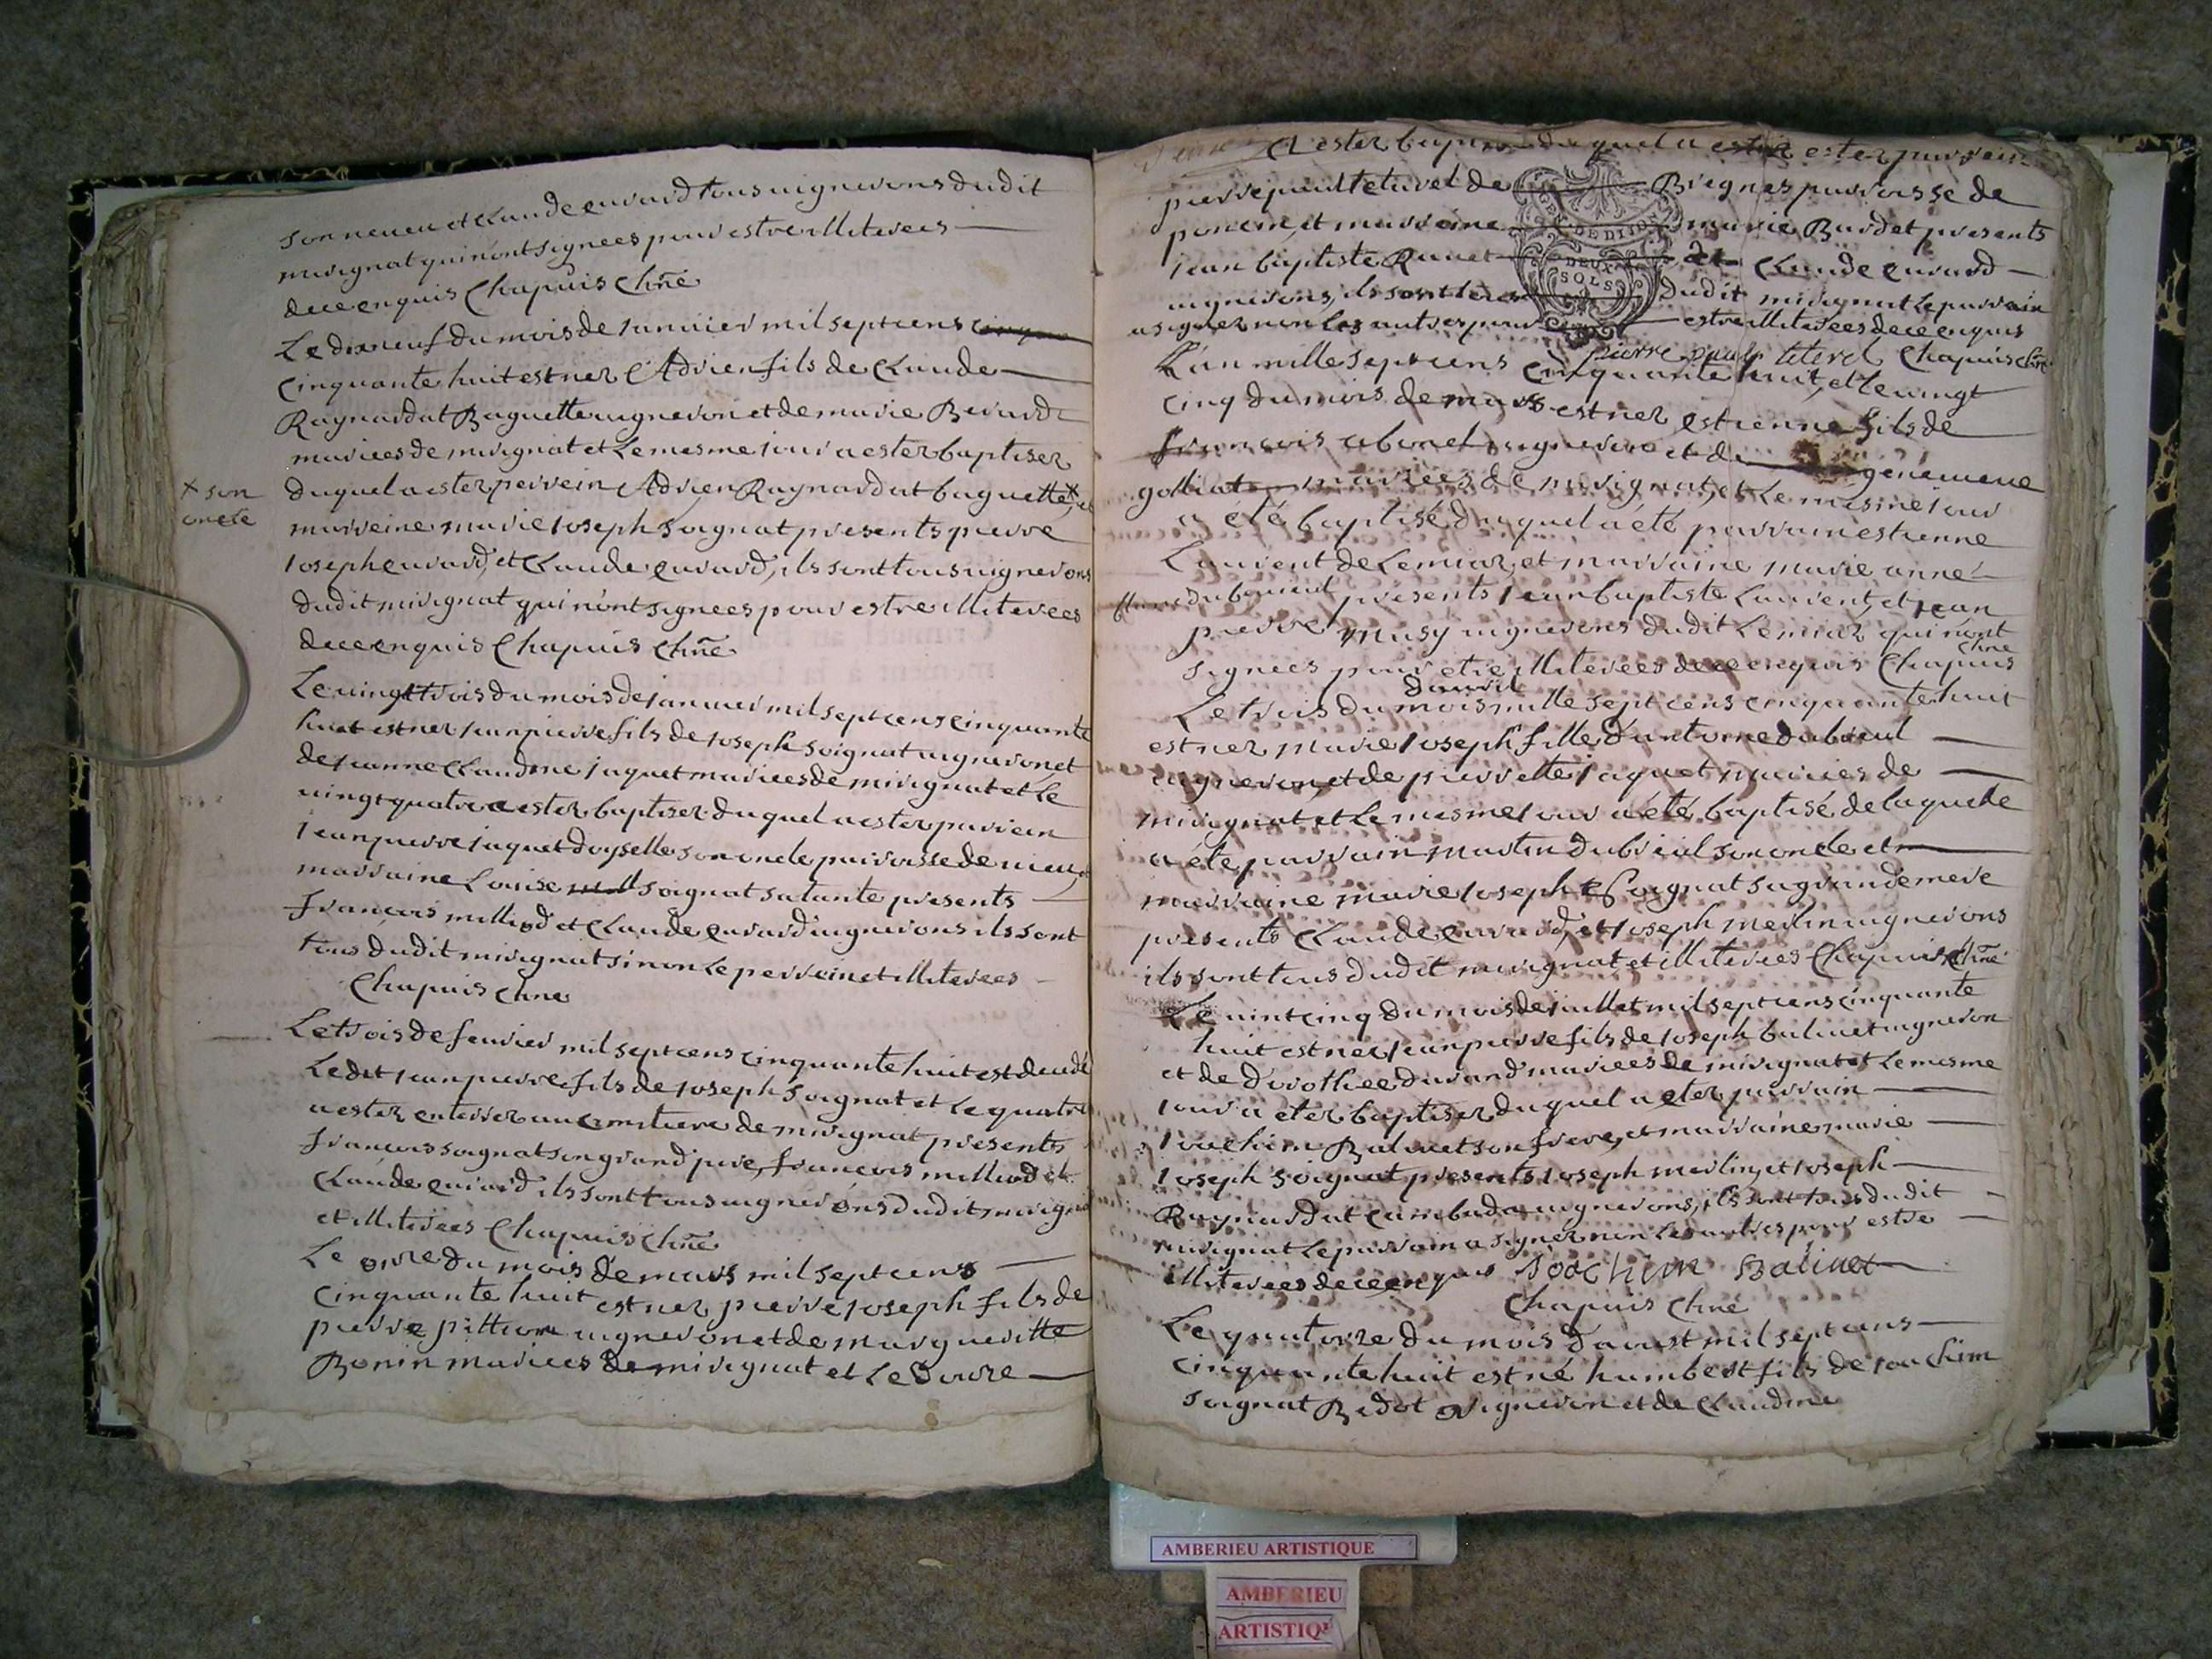 son neveu et claude euvard tous vignerons dudit
mirignat qui nont signees pour estre illiterees
dece enquis Chapuis Chne
Le dixneuf du mois de ianvier mil sept cens cinqua
cinquante huit est nez Adrien fils de Claude
Raynard dat Baguette vigneron et de marie Berard
mariees de mirignat et Le mesme iour a ester baptiser
duquel a ester perrein Adrien Raynard dat baguette x et
x son
oncle
marreine marie ioseph soignat presents pierre
ioseph euvard, et Claude euvard, ils sont tous vignerons
dudit mirignat qui nont signees pour estre illiterees
dece enquis Chapuis Chne
Le vingt trois du mois de ianvier mil sept cens cinquante
huit est nez iean pierre fils de ioseph soignat vigneron et
de ieanne Claudine iaquet mariees de mirignat et Le
vingt quatre a ester baptiser duquel a ester parrein
iean pierre iaquet doyselle son oncle parroisse de vieu, et
marraine Louise mill soignat sa tante presents
francois milliod et Claude euvard vignerons ils sont
tous dudit mirignat sinon le perrein et illiterees
Chapuis Chne
Le trois de fevrier mil sept cens cinquante huit est decedé
Ledit iean pierre fils de ioseph soignat et Le quatre
a ester enterrer au cimitiere de mirignat presents
francois soignat son grand pere, francois milliod et
Claude euvard ils sont tous vignerons dudit mirignat
et illiterees Chapuis Chne
Le onze du mois de mars mil sept cens
cinquante huit est nez pierre ioseph fils de
pierre pittion vigneron et de margueritte
Bonin mariees de mirignat et Le douze
a ester baptiser duquel a ester parrain
pierre paul teterel de Bregnes parroisse de
poncin, et marreine marie Burdet presents
iean baptiste Runet et Claude euvard
vignerons, ils sont tous dudit mirignat le parrain
a signer non les autres pour estre illiterees dece enquis
pierre paul teterel Chapuis Chne
L'an mille sept cens cinquante huit, et le vingt
cinq du mois de mars est nez estienne fils de
francois abonel vigneron et de genevieve
golliat mariees de mirignat, et Le mesme iour
a été baptisé duquel a été parrain estienne
Laurent de Lemiaz, et marraine marie anne
dubouveil presents iean baptiste Laurent, et iean
pierre musy vignerons dudit Lemiaz qui nont
signees pour etre illiterees dece enquis Chapuis Chne
Le trois du mois davril mille sept cens cinquante huit
est nez marie ioseph fille dantoine dubreul
vigneron et de pierrette iaquet mariees de
mirignat et Le mesme iour a été baptisé de laquelle
a été parrain martin dubreul son oncle et
marraine marie ioseph Soignat sa grande mere
presents Claude euvard, et ioseph merlin vignerons
ils sont tous dudit mirignat et illiterees Chapuis Chne
Le vint cinq du mois de iuillet mil sept cens cinquante
huit est nez iean pierre fils de ioseph balivet vigneron
et de dorothee durand mariees de mirignat et Le mesme
iour a eter baptiser duquel a eter parrain
ioachim Balivet son frere, et marraine marie
ioseph soignat presents ioseph merlin, et ioseph
Raynard dat cambada vignerons, ils sont tous dudit
mirignat Le parrain a signer non les autres pour estre
illiterees dece enquis Joachim Balivet
Chapuis Chne
Le quatorze du mois daoust mil sept cens
cinquante huit est né humbert fils de ioachim
soignat Bidot vigneron et de Claudine
GEN. DE DIJON
DEUX
SOLS
AMBERIEU ARTISTIQUE
AMBERIEU
ARTISTIQ